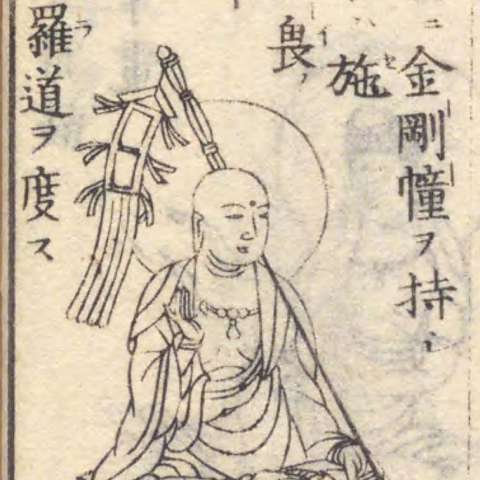 ニ金剛幢ヲ持シ
ハ施
畏ノ
羅道ヲ度ス